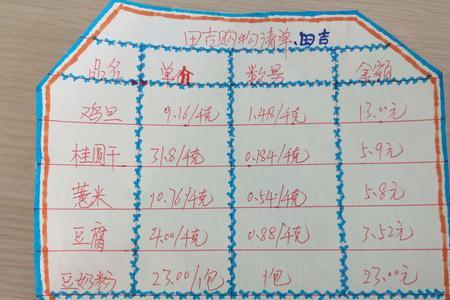 田吉购物清单,田吉
品名 单价 数量 金额
鸡旦 9.16/千克 1.48/千克 13.00元
桂圆干 31.8/千克 0.184/千克 5.9元
薏米 10.76/千克 0.54/千克 5.8元
豆腐 4.00/千克 0.88/千克 3.52元
豆奶粉 23.00/1包 1包 23.00元